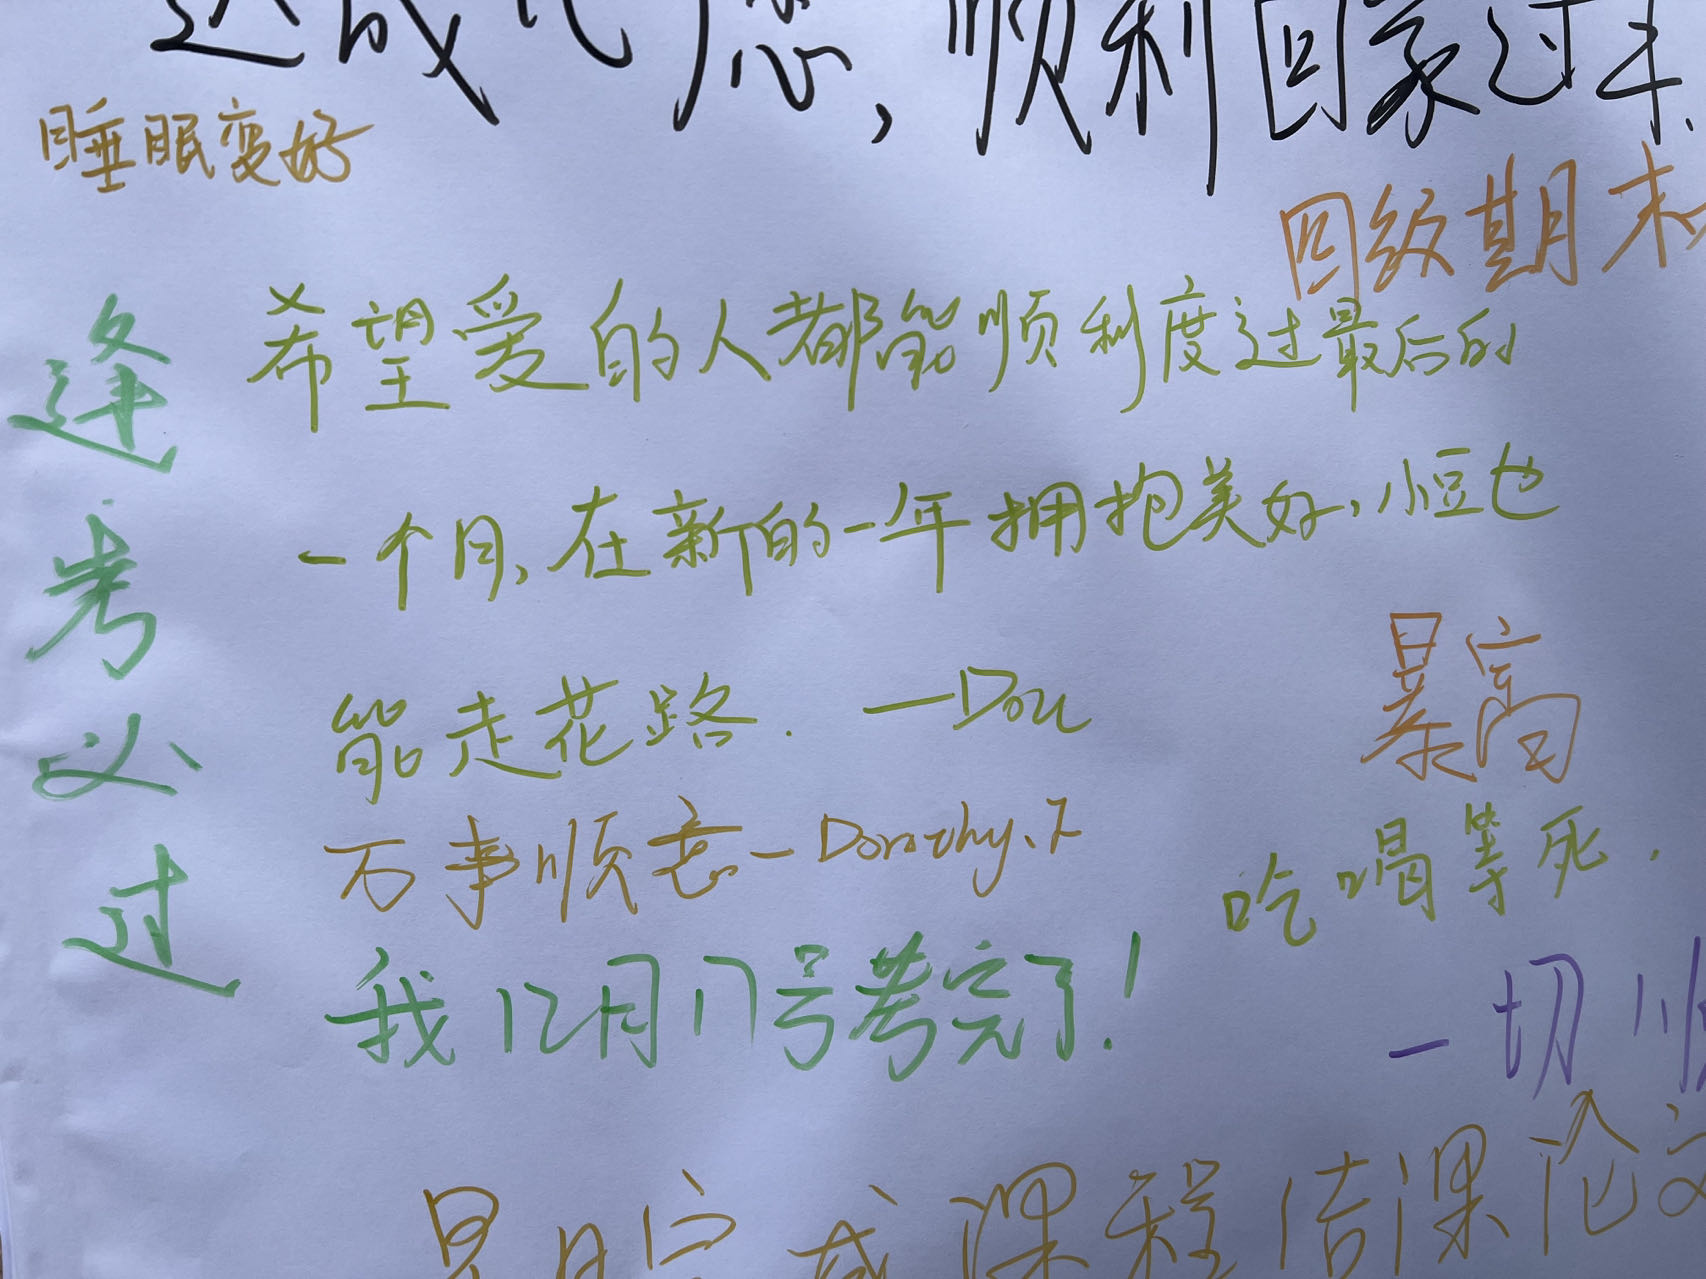 顺利回家过年.
睡眠变好
四级期末
逢考必过
希望爱的人都能顺利度过最后的
一个月,在新的一年拥抱美好,小豆也
能走花路. —Dou
暴富
万事顺意—Dorothy.F
吃喝等死.
我12月17号考完了!
一切顺
完成课程结课论文